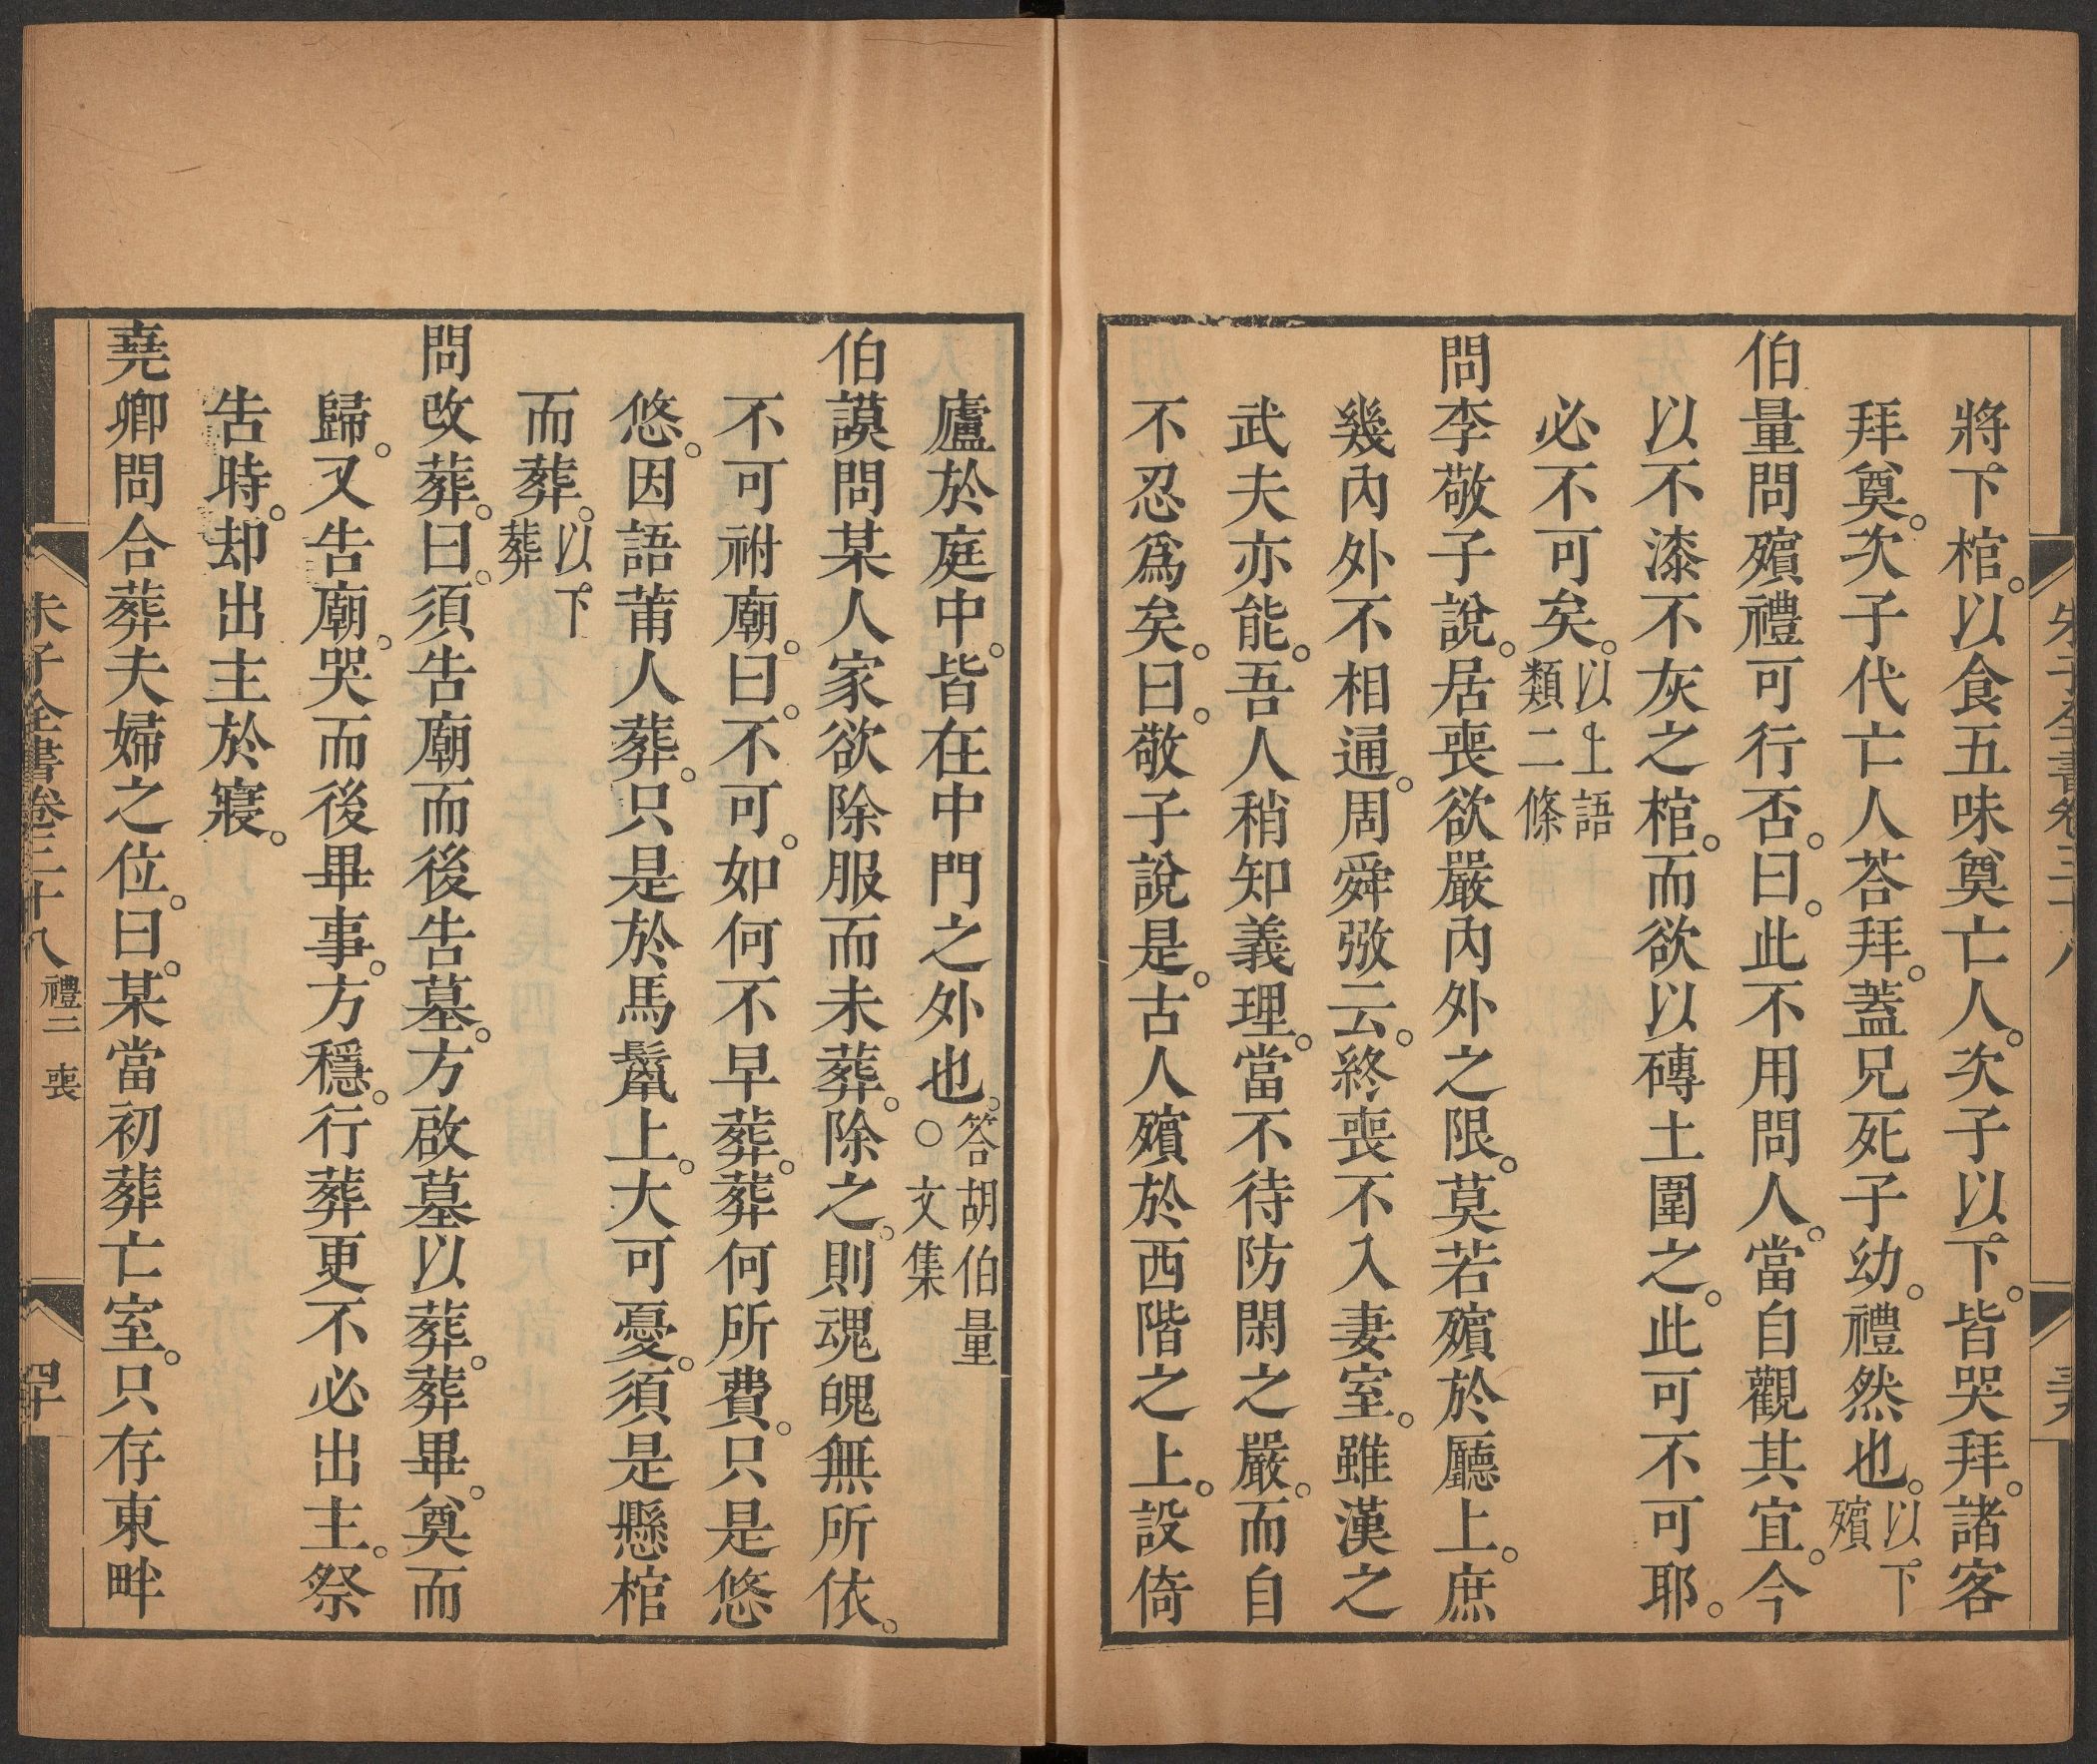 將下棺。以食五味奠亡人。次子以下。皆哭拜。諸客
拜奠。次子代亡人荅拜。蓋兄死子幼。禮然也。以下殯
伯量問殯禮可行否。曰。此不用問人。當自觀其宜。今
以不漆不灰之棺。而欲以磚土圍之。此可不可耶。
必不可矣。以上語類二條
問李敬子說。居喪欲嚴內外之限。莫若殯於廳上。庶
幾內外不相通。周舜弼云。終喪不入妻室。雖漢之
武夫亦能。吾人稍知義理。當不待防閑之嚴。而自
不忍爲矣。曰。敬子說是。古人殯於西階之上。設倚
廬於庭中。皆在中門之外也。答胡伯量○文集
伯謨問某人家欲除服而未葬。除之。則魂魄無所依。
不可祔廟。曰。不可。如何不早葬。葬何所費。只是悠
悠。因語莆人葬。只是於馬鬣上。大可憂。須是懸棺
而葬。以下葬
問改葬。曰。須告廟而後告墓。方啟墓以葬。葬畢。奠而
歸。又告廟。哭而後畢事。方穩。行葬更不必出主。祭
告時。却出主於寢。
堯卿問合葬夫婦之位。曰。某當初葬亡室。只存東畔
朱子全書卷三十八 禮二 喪 四十